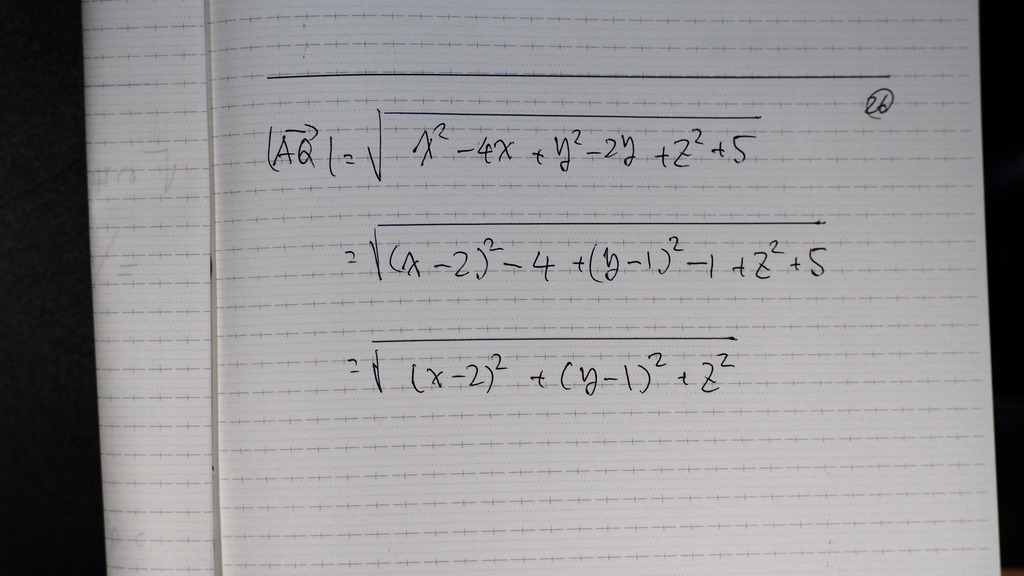 26
|\overrightarrow{AQ}| = \sqrt{x^2 - 4x + y^2 - 2y + z^2 + 5}
= \sqrt{(x-2)^2 - 4 + (y-1)^2 - 1 + z^2 + 5}
= \sqrt{(x-2)^2 + (y-1)^2 + z^2}